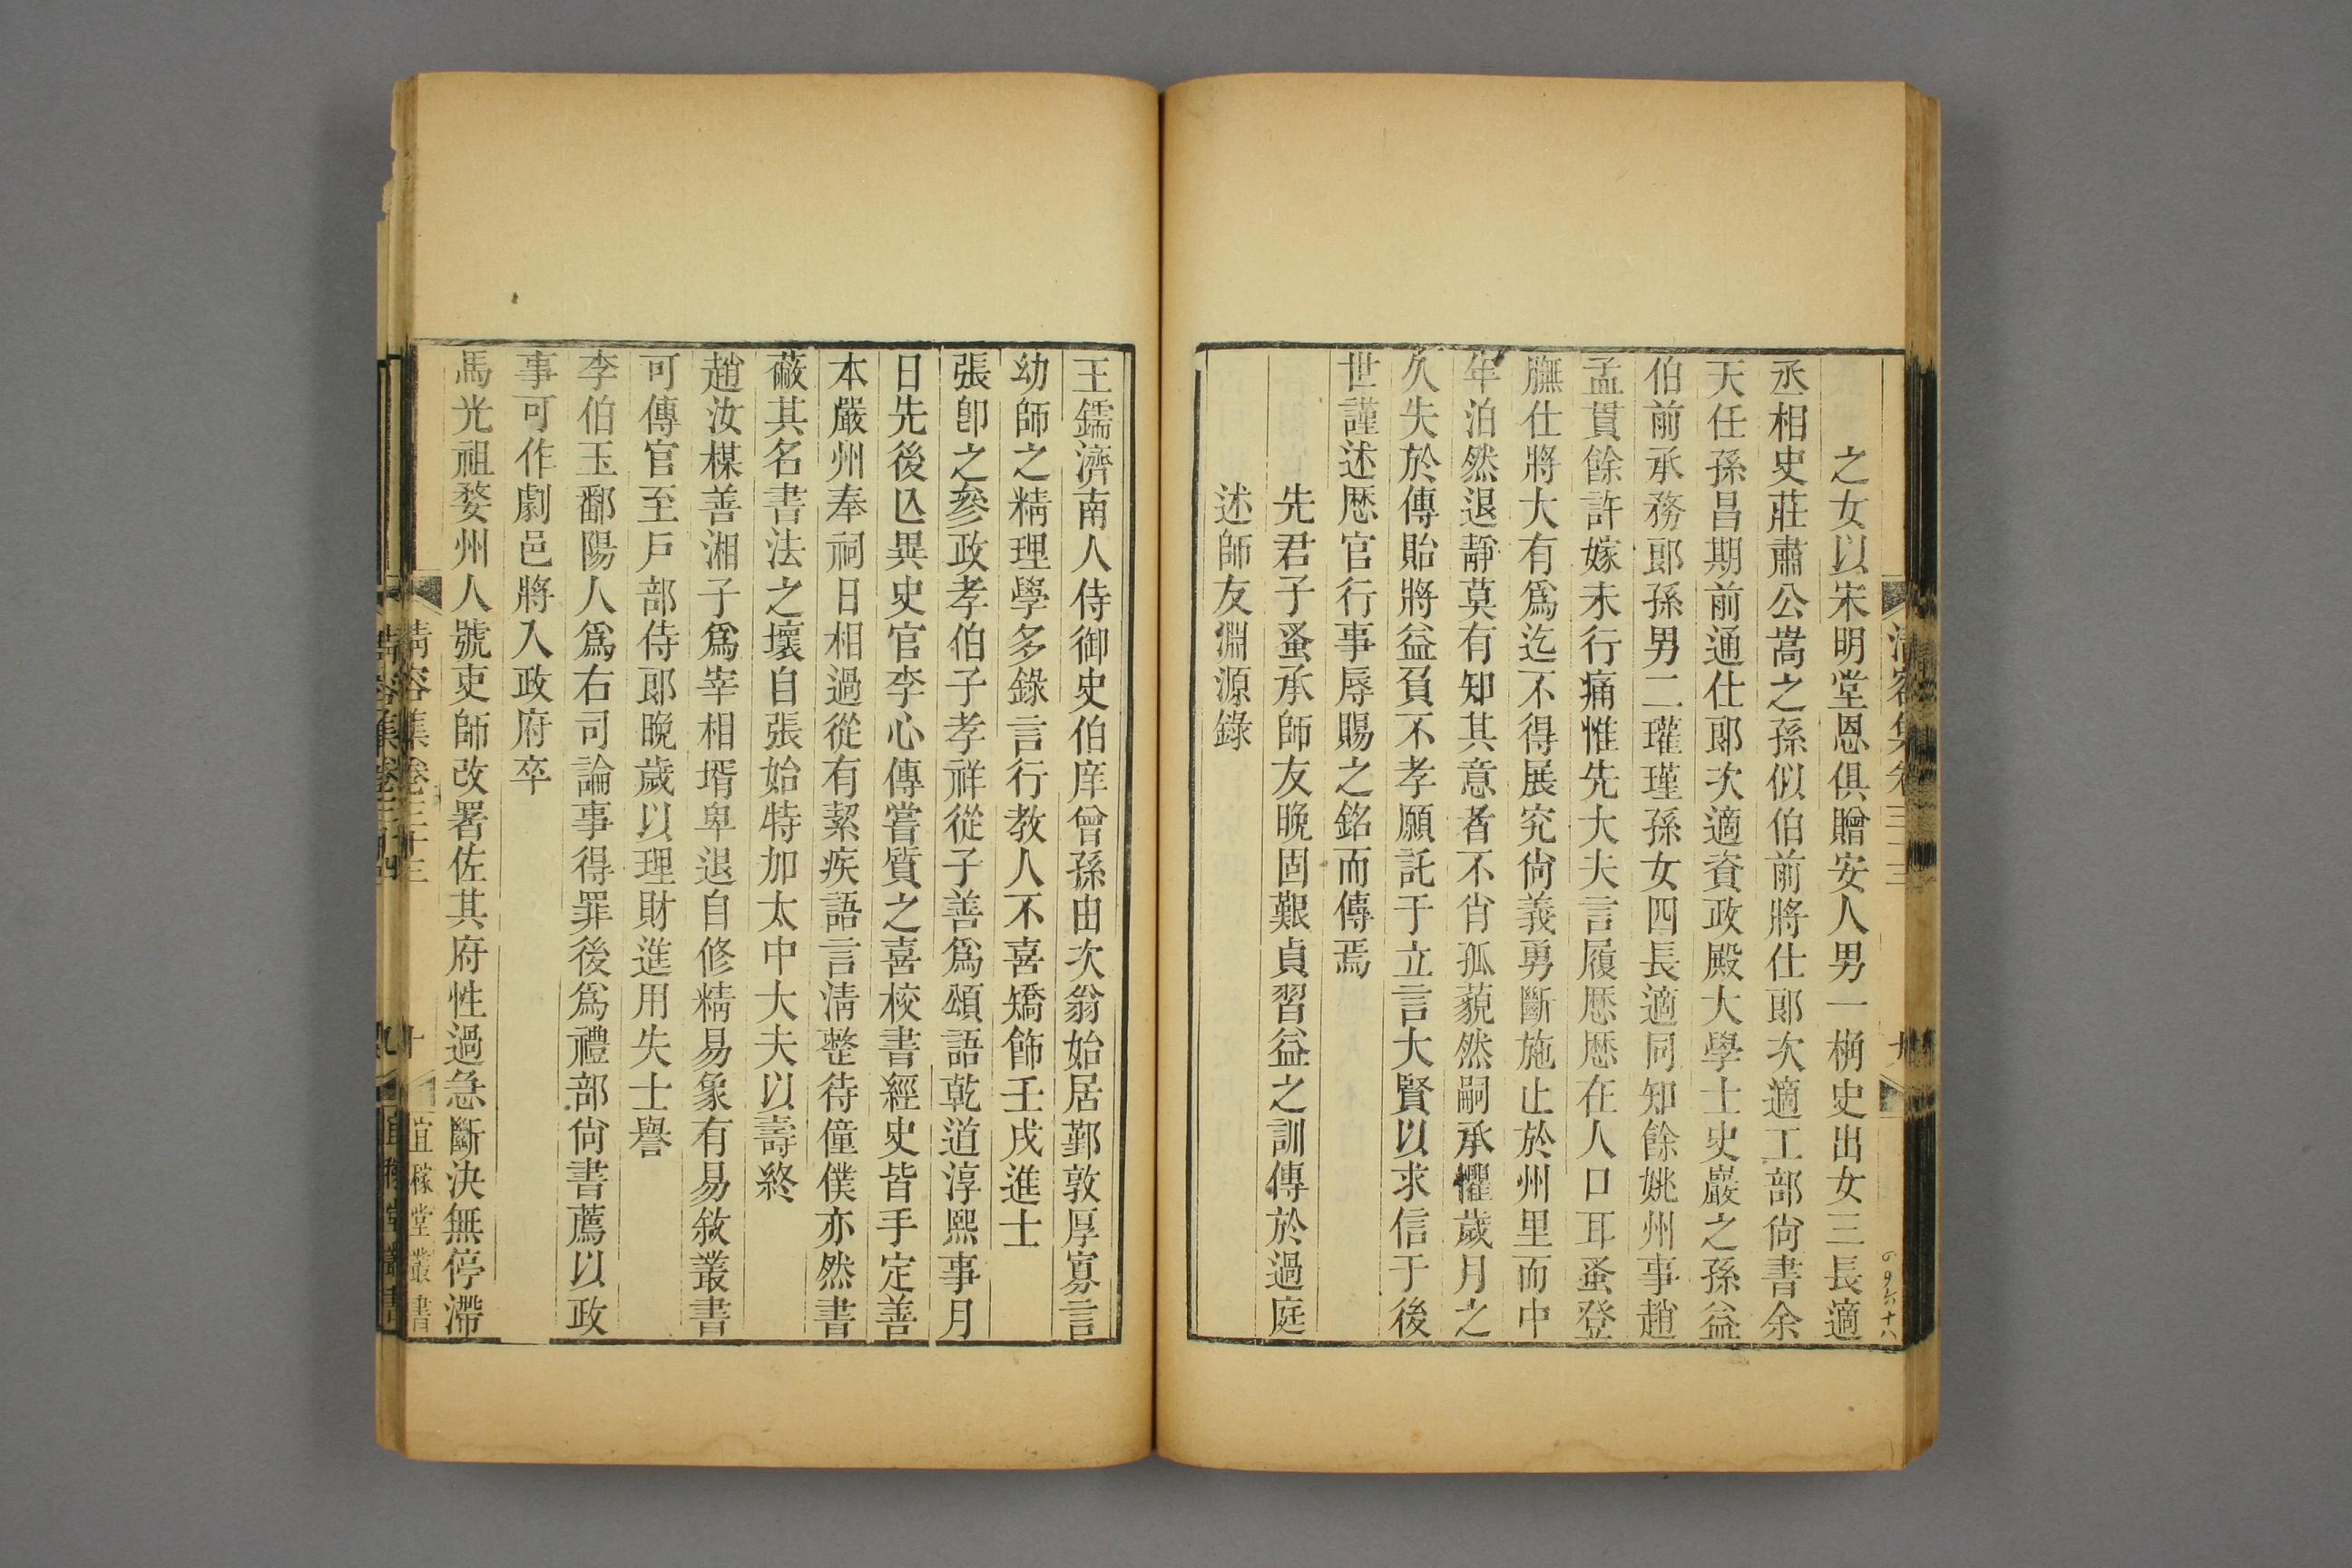 清容集卷三十三
之女以宋明堂恩俱贈安人男一桷史出女三長適
丞相史莊肅公嵩之孫似伯前將仕郎次適工部尙書余
天任孫昌期前通仕郎次適資政殿大學士史巖之孫益
伯前承務郎孫男二瓘瑾孫女四長適同知餘姚州事趙
孟貫餘許嫁未行痛惟先大夫言履歷歷在人口耳蚤登
膴仕將大有爲迄不得展究尙義勇斷施止於州里而中
年泊然退靜莫有知其意者不肖孤藐然嗣承懼歲月之
久失於傳貽將益負不孝願託于立言大賢以求信于後
世謹述歷官行事辱賜之銘而傳焉
先君子蚤承師友晚固艱貞習益之訓傳於過庭
述師友淵源錄
王鑐濟南人侍御史伯庠曾孫由次翁始居鄞敦厚寡言
幼師之精理學多錄言行教人不喜矯飾壬戌進士
張卽之參政孝伯子孝祥從子善爲頌語乾道淳熙事月
日先後亾異史官李心傳嘗質之喜校書經史皆手定善
本嚴州奉祠日相過從有絜疾語言淸整待僮僕亦然書
蔽其名書法之壞自張始特加太中大夫以壽終
趙汝楳善湘子爲宰相壻卑退自修精易象有易敘叢書
可傳官至戶部侍郎晚歲以理財進用失士譽
李伯玉鄱陽人爲右司論事得罪後爲禮部尙書薦以政
事可作劇邑將入政府卒
馬光祖婺州人號吏師改署佐其府性過急斷決無停滯
淸容集卷三十三
十
宜稼堂叢書